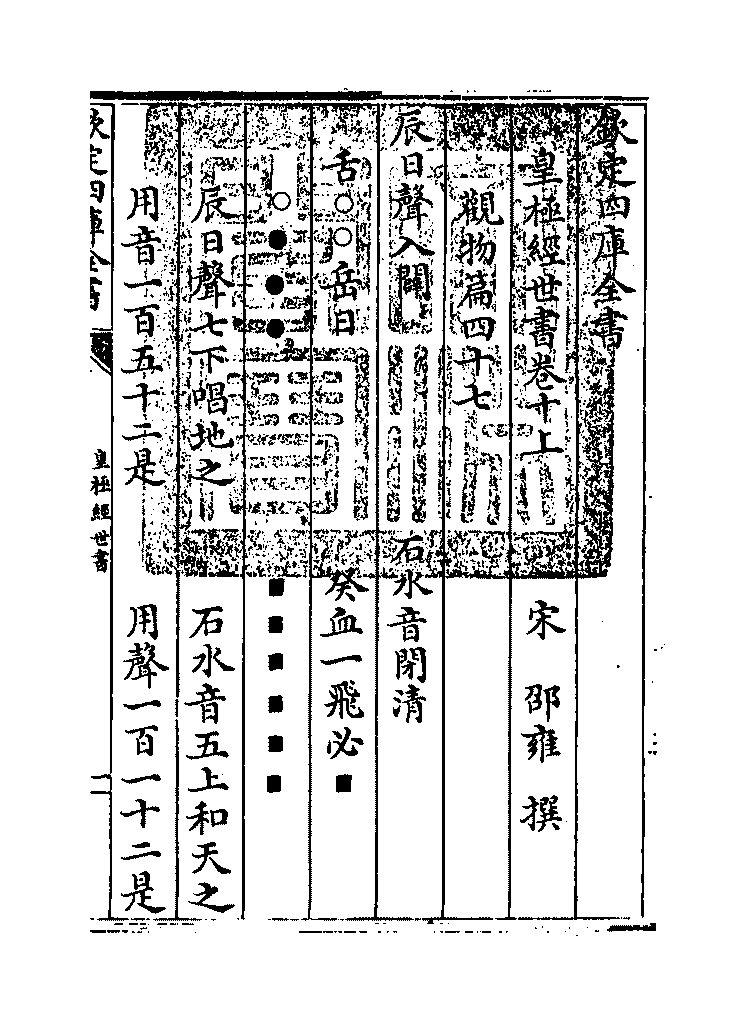 欽定四庫全書
皇極經世書卷十上
宋 邵雍 撰
觀物篇四十七
辰日聲入闢
石水音閉清
舌○○岳日
癸血一飛必■
○●●●
■■■■■■
辰日聲七下唱地之
石水音五上和天之
用音一百五十二是
用聲一百一十二是
欽定四庫全書
皇極經世書
一